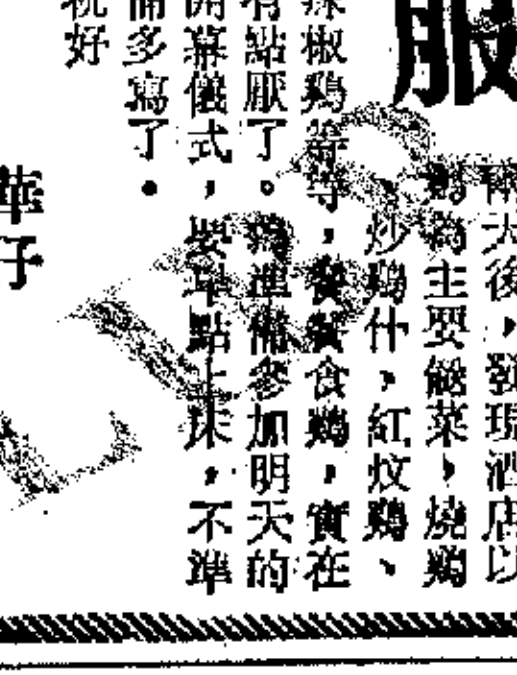 服
兩天後，發現酒店以
鷄為主要餸菜，燒鷄
、炒鷄什，紅炆鷄、
辣椒鷄等等，餐餐食鷄，實在
有點厭了。為準備參加明天的
開幕儀式，要早點上床，不準
備多寫了。
祝好
華仔